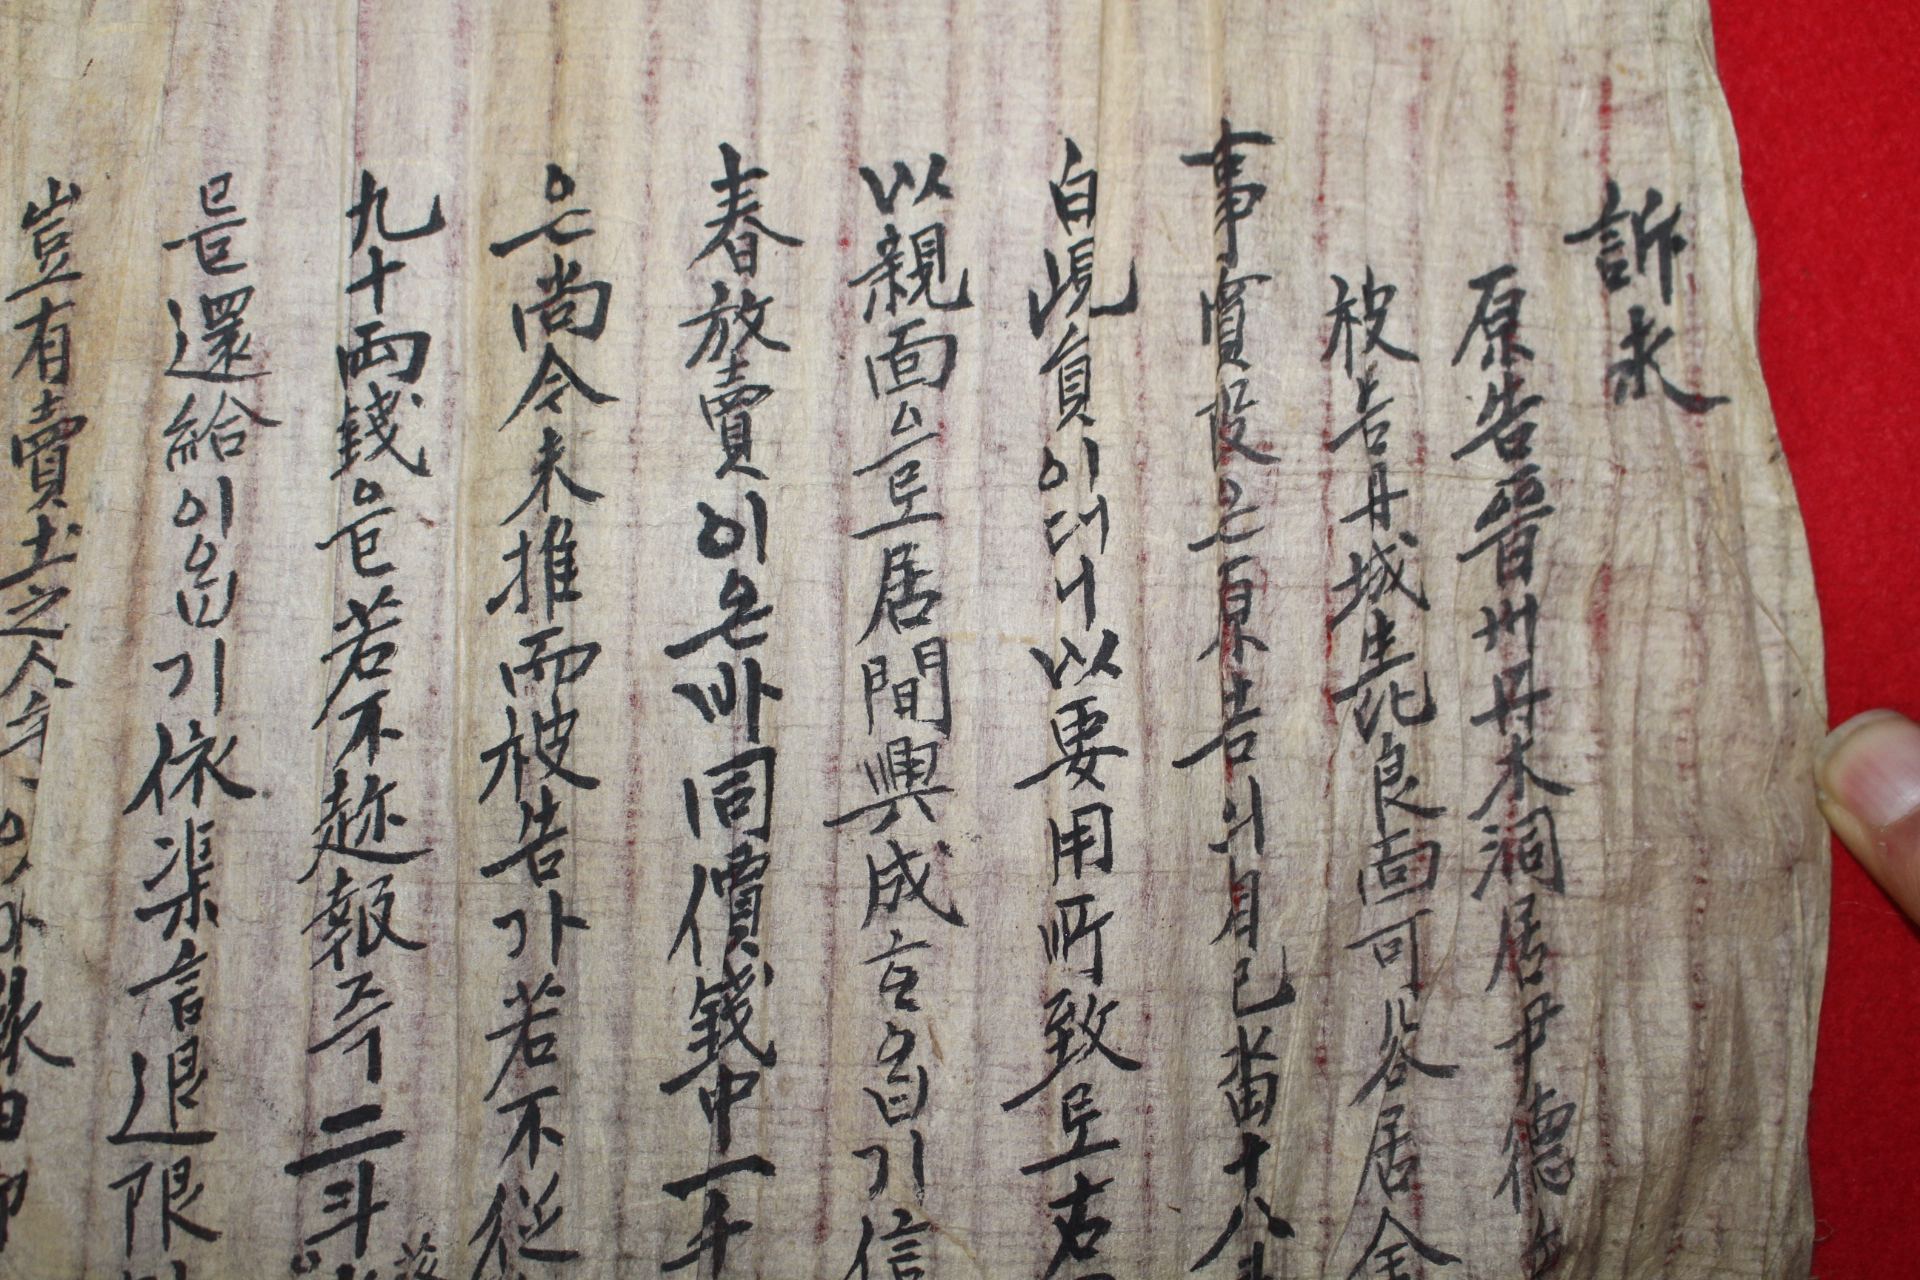 訴狀
原告晋州丹木洞居尹德
被告丹城生比良面可谷居全
事實段은原告의自己畓十八斗
自耕負이더니以要用所致로右
以親面으로居間興成言을음기信
春放賣이은바同價錢中一千
은尙今未推而被告가若不從
九十両錢을若不趂報즉二斗
를還給이옵기依渠言退限
豈有賣土之人